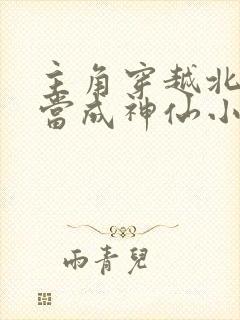 主角穿越北
当成神仙小
雨青儿